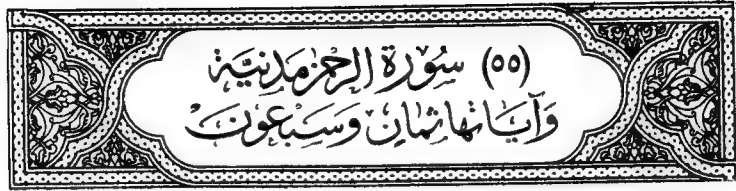 (٥٥) سُورَةُ الرَّحْمٰنِ مَدَنِيَّةٌ
وَآيَاتُهَا ثَمَانٍ وَسَبْعُونَ